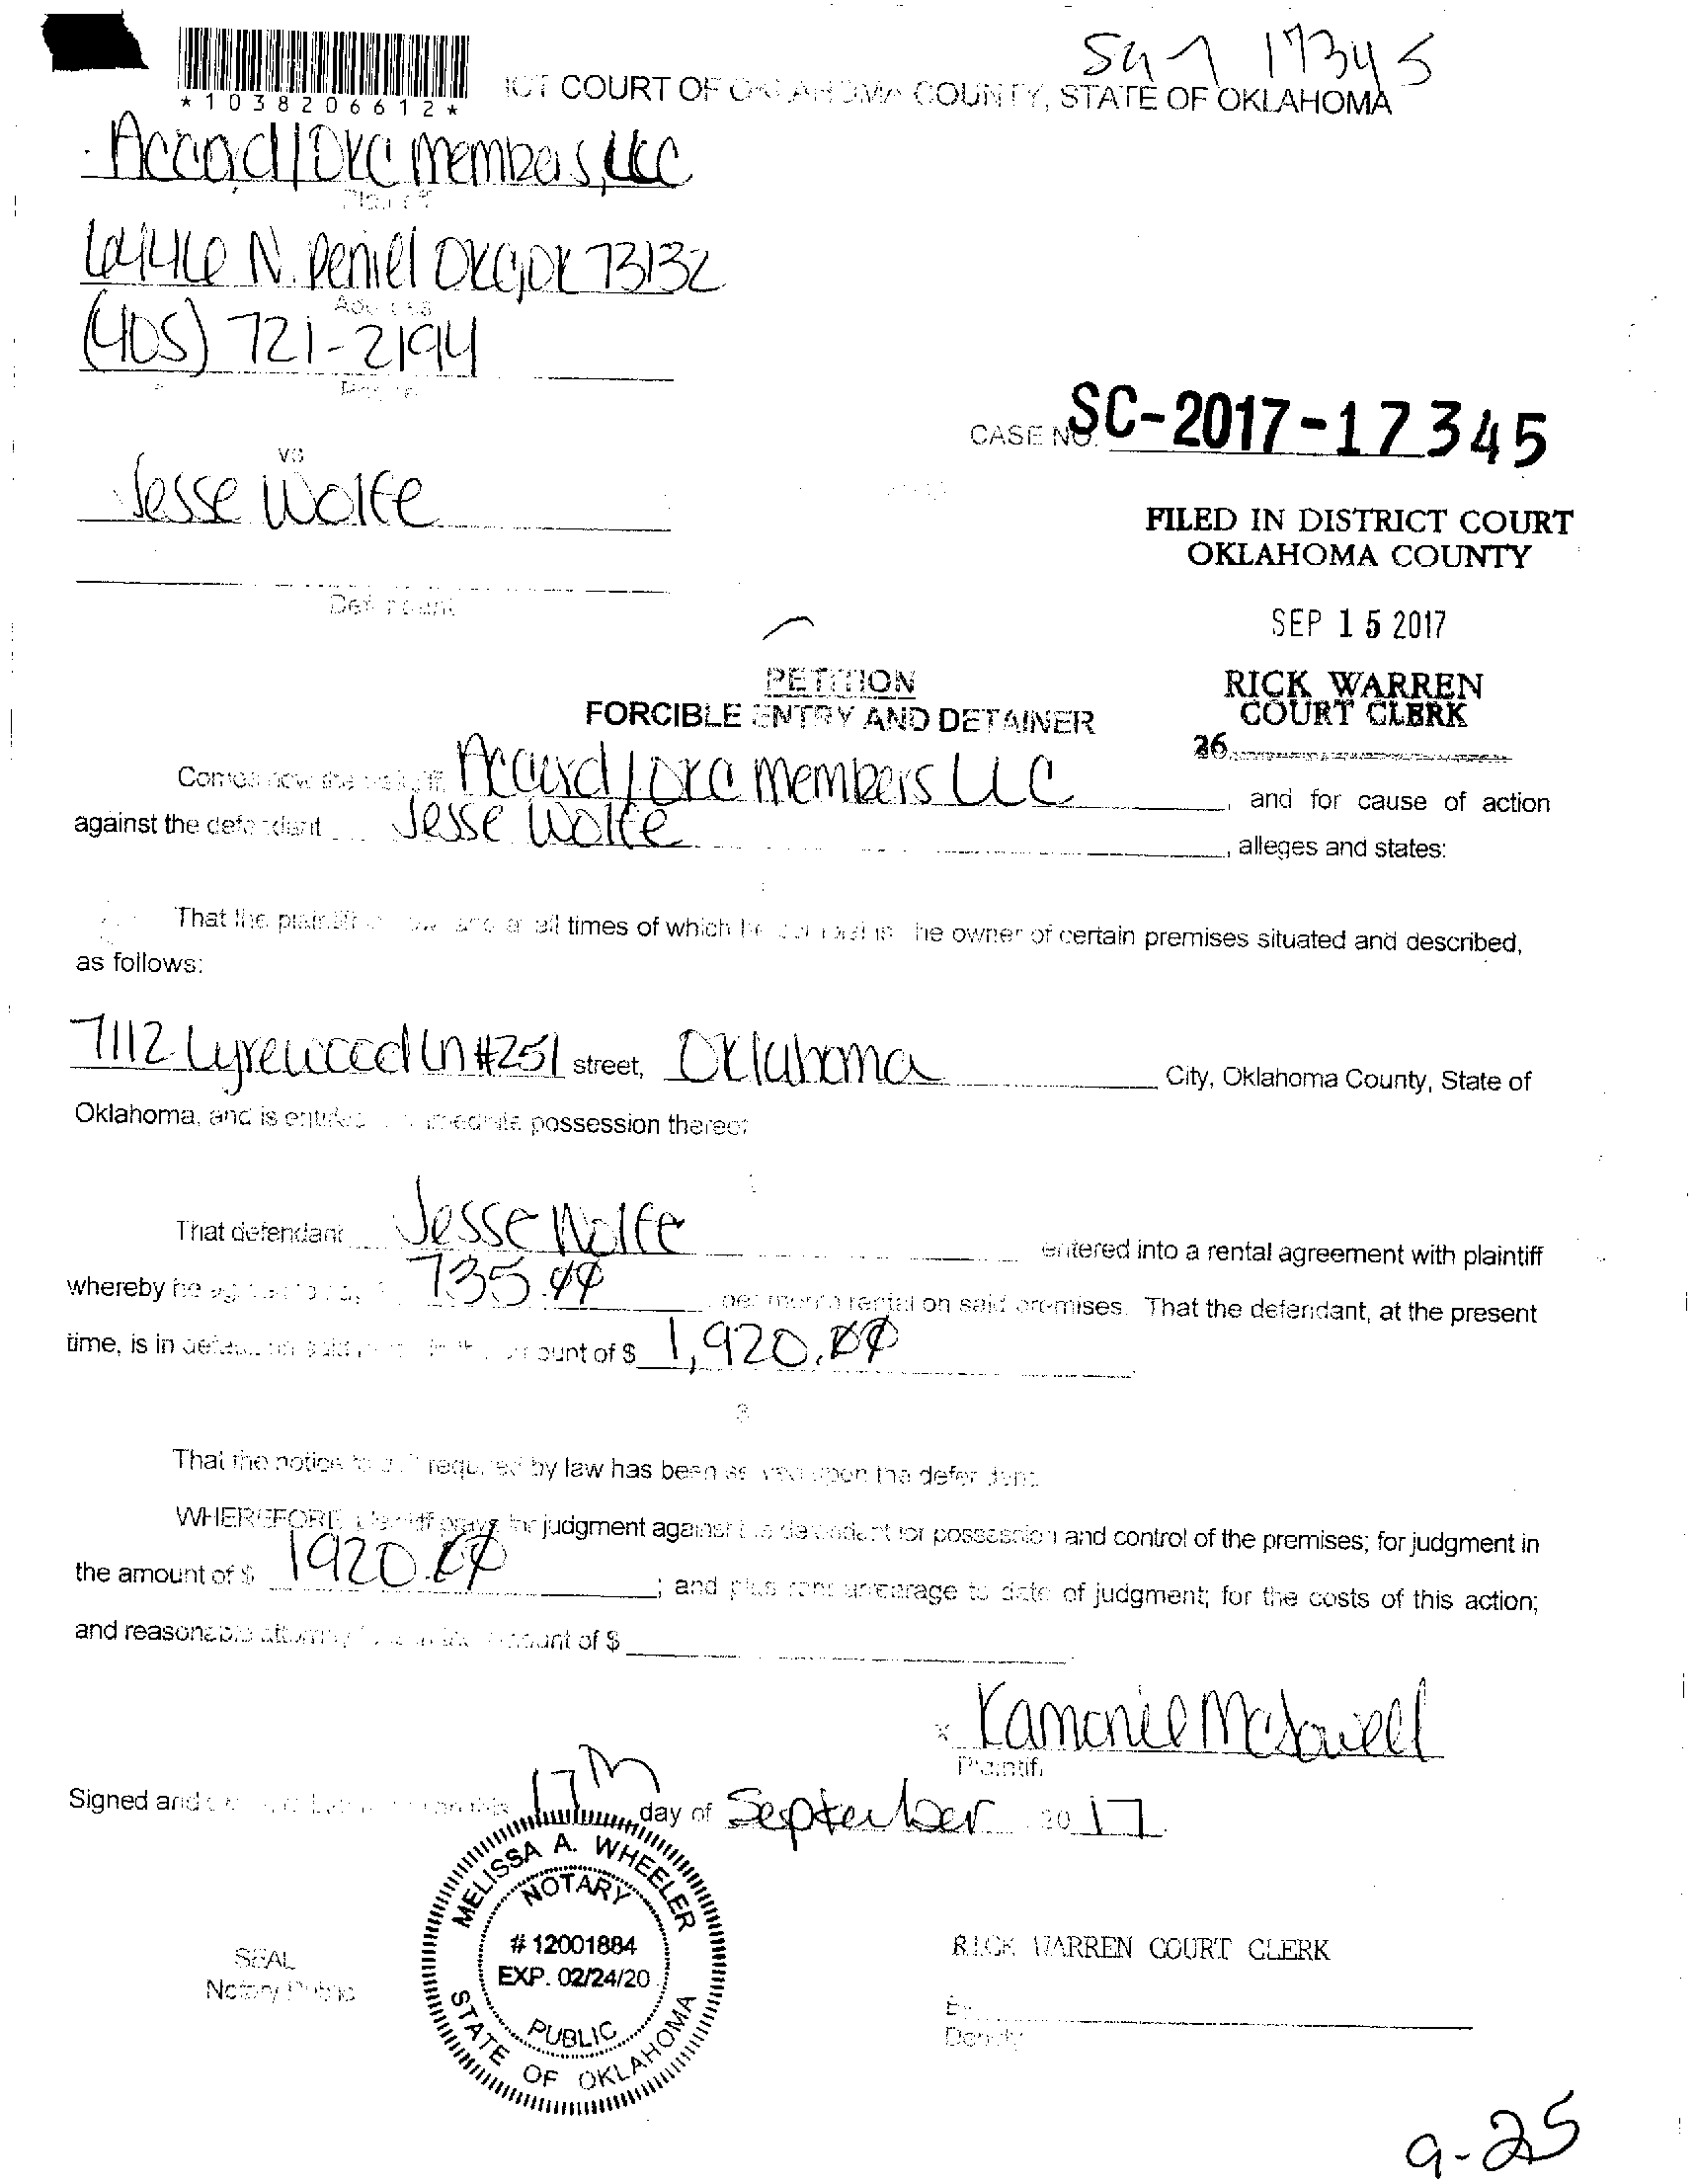 SC-17 17345
*1038206612*
ICT COURT OF OKLAHOMA COUNTY, STATE OF OKLAHOMA
Accord/OKC Members, LLC
Plaintiff
6446 N. Peniel OKC, OK 73132
Address
(405) 721-2194
CASE NO. SC-2017-17345
vs
Jesse Wolfe
FILED IN DISTRICT COURT
OKLAHOMA COUNTY
Defendant
SEP 15 2017
PETITION
RICK WARREN
COURT CLERK
FORCIBLE ENTRY AND DETAINER
26
Comes now the plaintiff, Accord/OKC Members LLC, and for cause of action
against the defendant Jesse Wolfe, alleges and states:
That the plaintiff is now and at all times of which the owner of certain premises situated and described,
as follows:
7112 Lyrewood Ln #251 street, Oklahoma City, Oklahoma County, State of
Oklahoma, and is entitled immediate possession thereof
That defendant Jesse Wolfe entered into a rental agreement with plaintiff
whereby he 735.00 per month rental on said premises. That the defendant, at the present
time, is in amount of $ 1,920.00
3
That the notice to quit required by law has been served upon the defendant.
WHEREFORE, plaintiff prays for judgment against the defendant for possession and control of the premises; for judgment in
the amount of $ 1920.00; and plus rent arrearage to date of judgment; for the costs of this action;
and reasonable attorney amount of $
x Kamonie McDowell
Plaintiff
Signed and this 17th day of September 2017
MELISSA A. WHEELER
NOTARY
# 12001884
EXP. 02/24/20
PUBLIC
STATE OF OKLAHOMA
SEAL
Notary Public
RICK WARREN COURT CLERK
By
Deputy
9-25